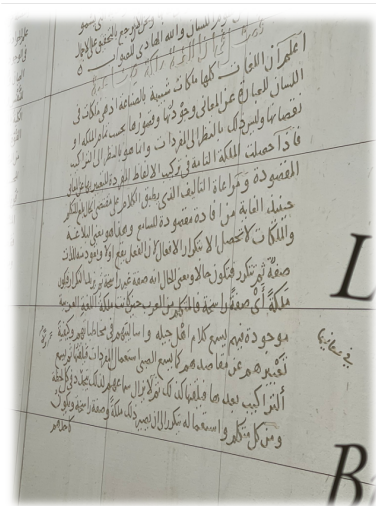 اللسان والله الهادي للصواب
اعلم أن اللغات كلها ملكات شبيهة بالصناعة إذ هي ملكات في
اللسان للعبارة عن المعاني وجودتها وقصورها بحسب تمام الملكة أو
نقصانها وليس ذلك بالنظر إلى المفردات وإنما هو بالنظر إلى التراكيب
فإذا حصلت الملكة التامة في تركيب الألفاظ المفردة للتعبير بها عن المعاني
المقصودة ومراعاة التأليف الذي يطبق الكلام على مقتضى الحال بلغ المتكلم
حينئذ الغاية من إفادة مقصوده للسامع وهذا هو معنى البلاغة
والملكات لا تحصل إلا بتكرار الأفعال لأن الفعل يقع أولا وتعود منه للذات
صفة ثم تتكرر فتكون حالا ومعنى الحال أنه صفة غير راسخة ثم يزيد التكرار فتكون
ملكة أي صفة راسخة فالمتكلم من العرب حين كانت ملكة اللغة العربية
موجودة فيهم يسمع كلام أهل جيله وأساليبهم في مخاطباتهم وكيفية
تعبيرهم عن مقاصدهم كما يسمع الصبي استعمال المفردات فيلقنها ثم يسمع
في معانيها
التراكيب بعدها فيلقنها كذلك ثم لا يزال سماعهم لذلك يتجدد في كل لحظة
ومن كل متكلم واستعماله يتكرر إلى أن يصير ذلك ملكة وصفة راسخة ويكون
كأحدهم
L
B